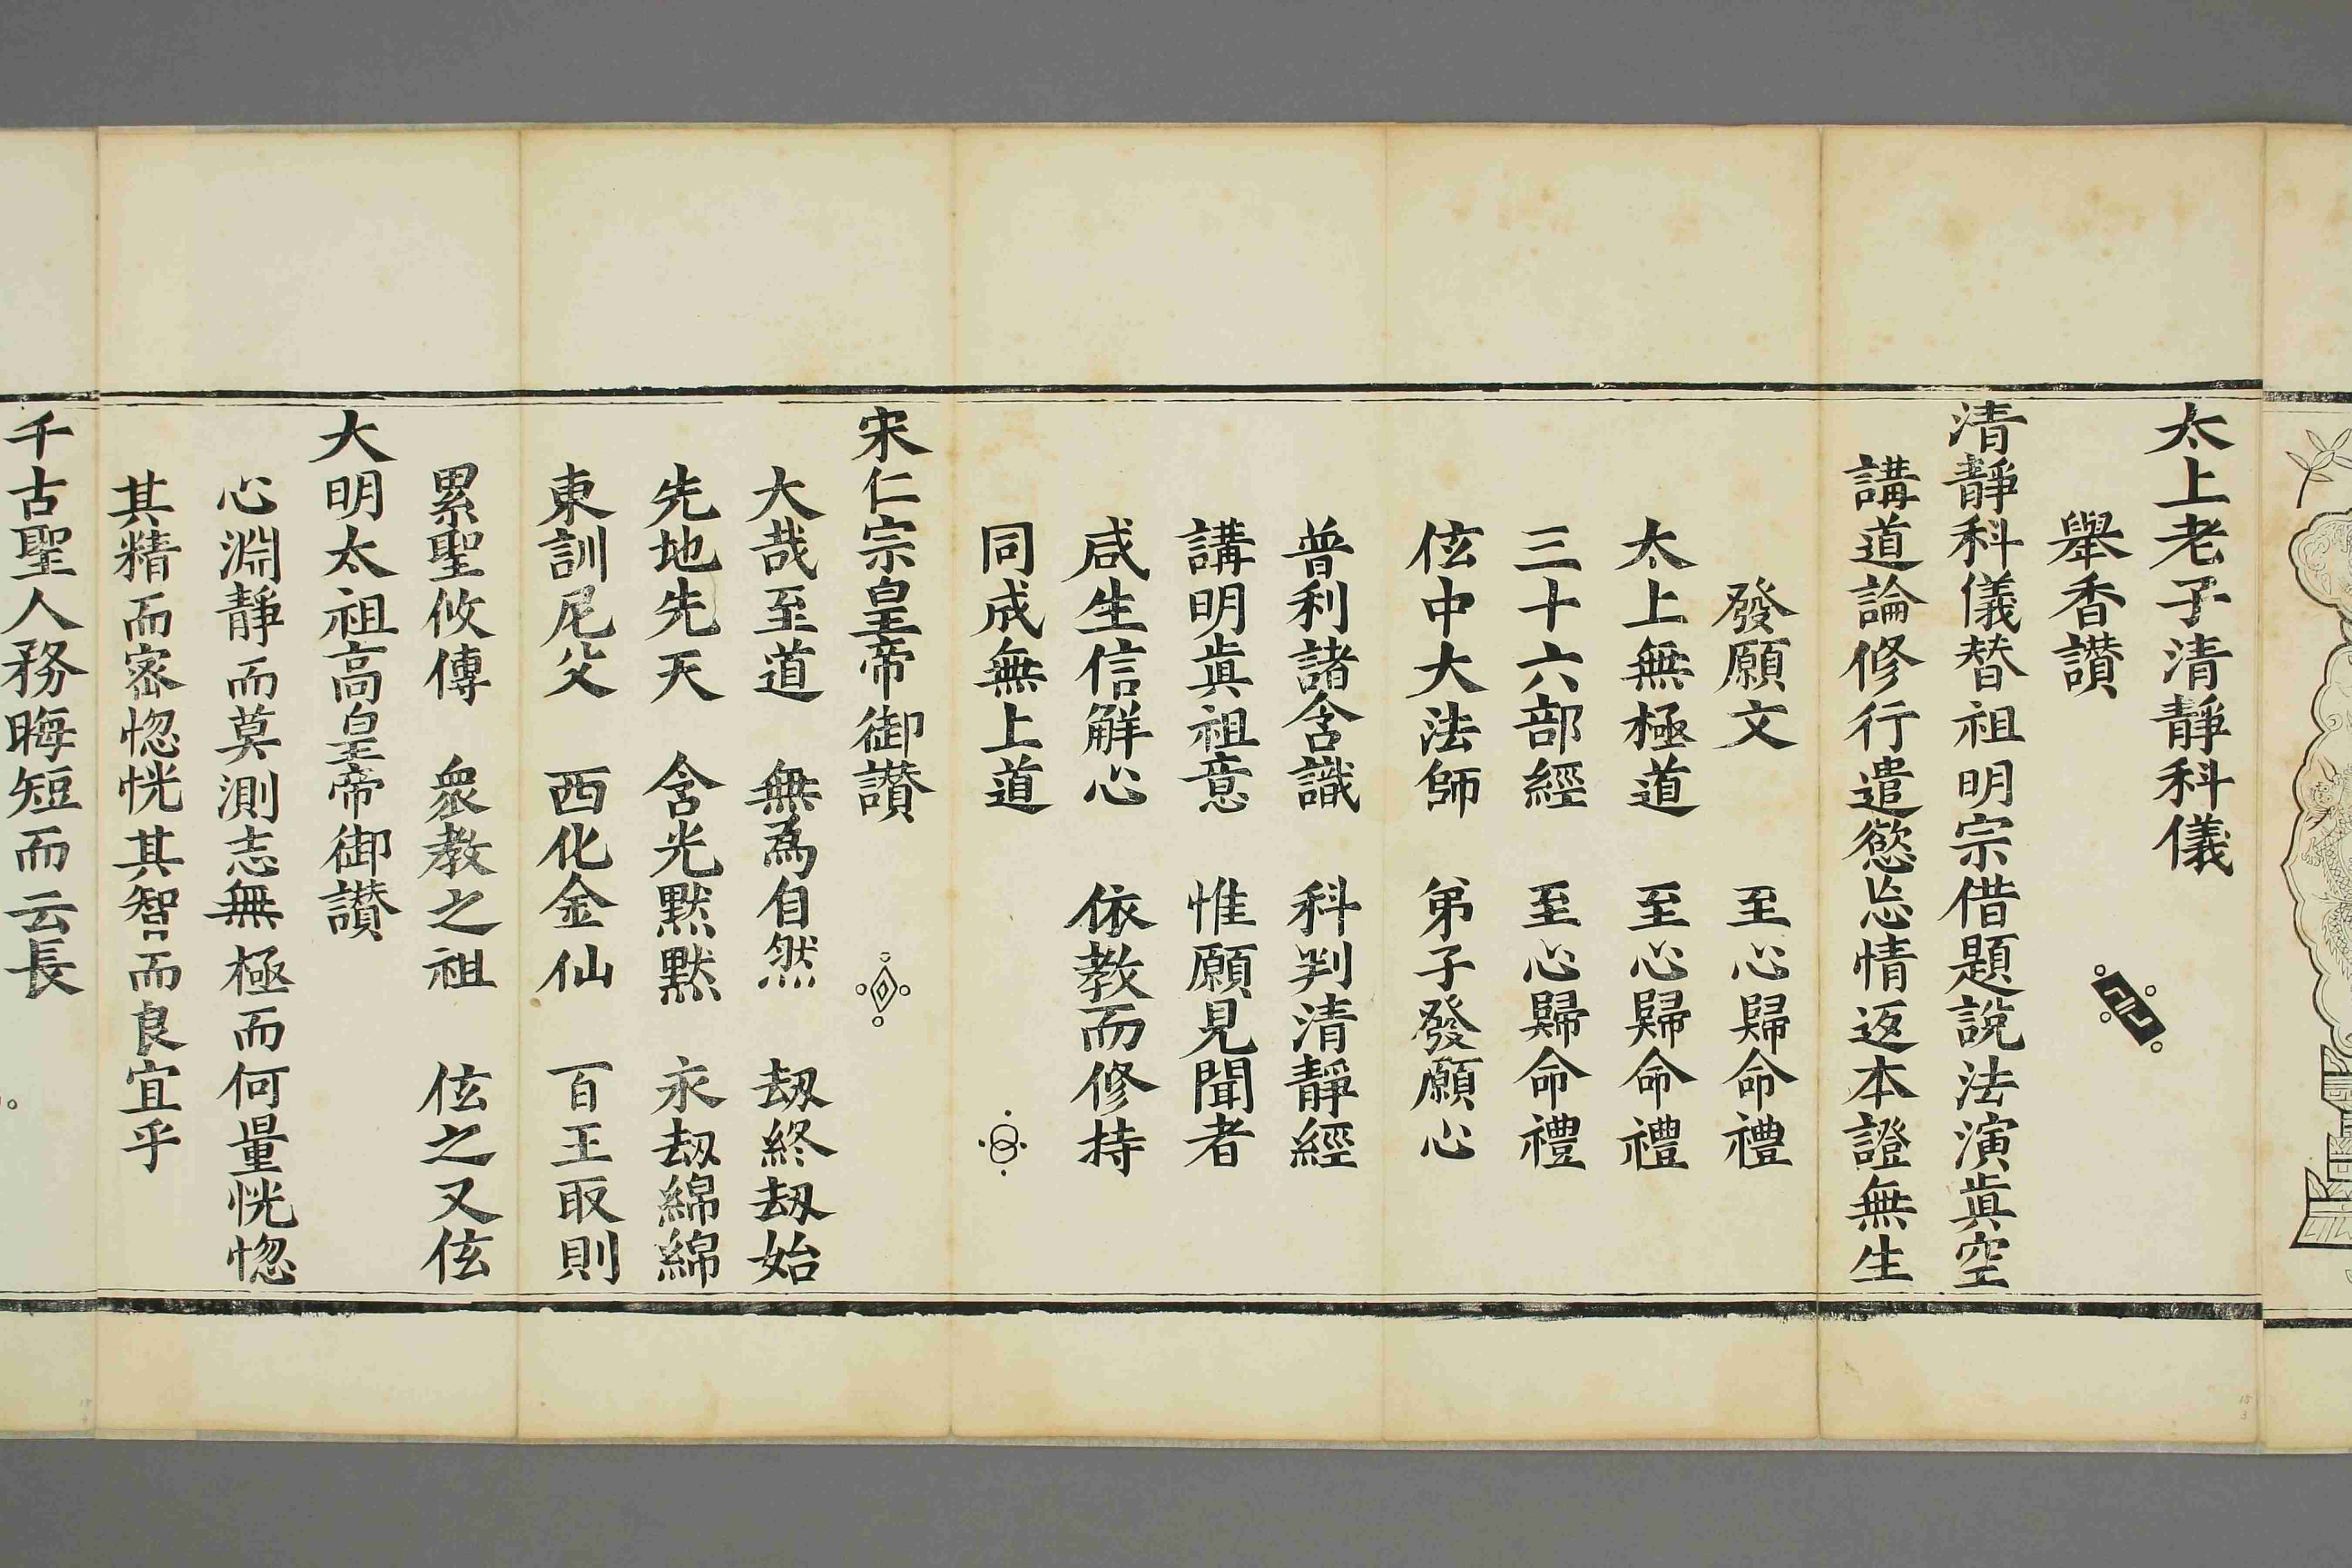 太上老子清靜科儀
舉香讚
清靜科儀替祖明宗借題說法演眞空
講道論修行遣慾忘情返本證無生
發願文　至心歸命禮
太上無極道　至心歸命禮
三十六部經　至心歸命禮
伭中大法師　弟子發願心
普利諸含識　科判清靜經
講明眞祖意　惟願見聞者
咸生信解心　依教而修持
同成無上道
宋仁宗皇帝御讚
大哉至道　無為自然　劫終劫始
先地先天　含光默默　永劫綿綿
東訓尼父　西化金仙　百王取則
累聖攸傳　衆教之祖　伭之又伭
大明太祖高皇帝御讚
心淵靜而莫測志無極而何量恍惚
其精而密惚恍其智而良宜乎
千古聖人務晦短而云長